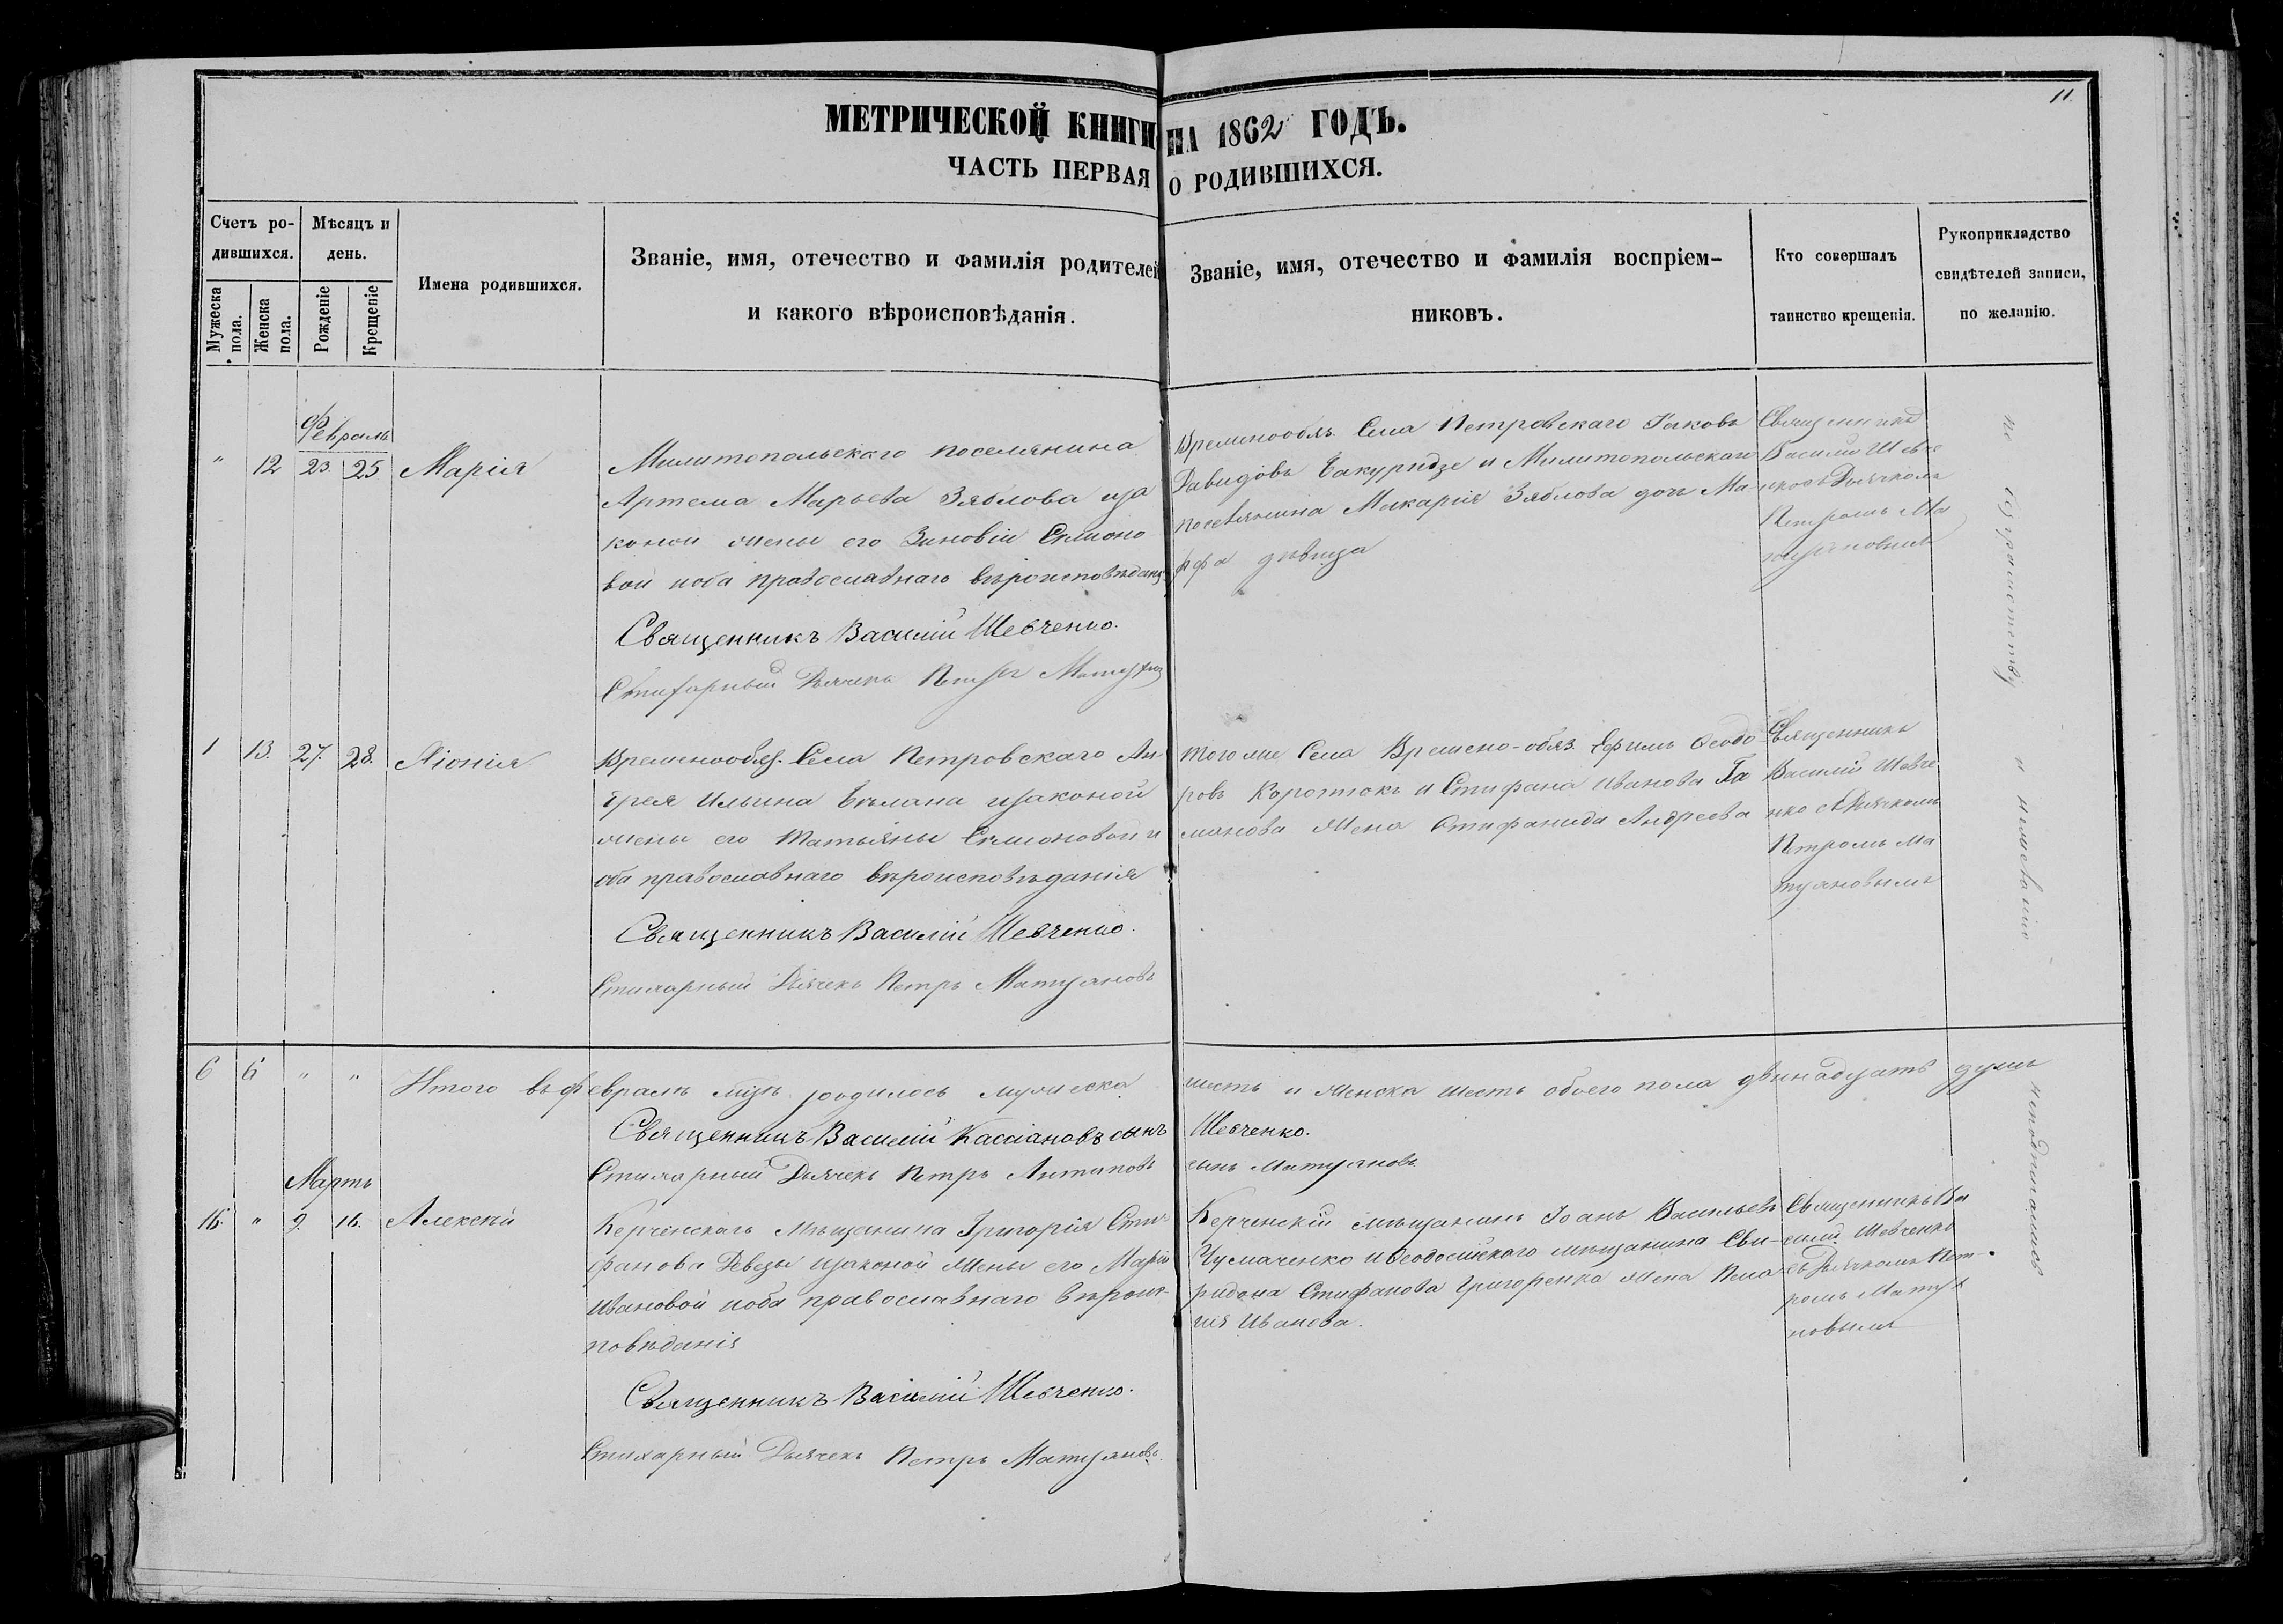 11
МЕТРИЧЕСКОЙ КНИГИ НА 1862 ГОДЪ.
ЧАСТЬ ПЕРВАЯ О РОДИВШИХСЯ.
Счетъ ро-
дившихся.
Мужеска пола.
Женска пола.
Мѣсяцъ и
день.
Рожденіе
Крещеніе
Имена родившихся.
Званіе, имя, отечество и фамилія родителей
и какого вѣроисповѣданія.
Званіе, имя, отечество и фамилія воспріем-
никовъ.
Кто совершалъ
таинство крещенія.
Рукоприкладство
свидѣтелей записи,
по желанію.
Февраль
" 12 23 25 Марія
Милитопольскаго поселянина
Артема Марьева Зяблова иза
коной жены его Зиновіи Семионо
вой иоба православнаго вѣроисповѣданія
Священникъ Василій Шевченко.
Стихарный Дьячекъ Петръ
Временообяз. Села Петровскаго Іаковъ
Давидовъ и Милитопольскаго
поселянина Макарія Зяблова дочь Ма-
рфа дѣвица
Священникъ
Василій Шевче
нко съ Дьячкомъ
Петромъ Ма
1 13. 27. 28. Хіонія
Временообяз. Села Петровскаго Ан
дрея Ильина Бѣлана изаконой
жены его Татьяны Семионовой и
оба православнаго вѣроисповѣданія
Священникъ Василій Шевченко.
Стихарный Дьячекъ Петръ Матуяновъ
того же Села Времено-обяз. Ефимъ Ѳеодо
ровъ Коротокъ и Стифана Иванова Га
манова Жена Стифанида Андреева
Священникъ
Василій Шевче
нко съ Дьячкомъ
Петромъ Ма
туяновымъ
6 6 " " Итого въ февралѣ мцѣ родилось мужеска шесть и женска шесть обоего пола двѣнадцать душъ
Священникъ Василій Кассіановъ сынъ Шевченко.
Стихарный Дьячекъ Петръ Антиповъ сынъ Матуяновъ
Мартъ
16. " 9. 16. Алексѣй
Керченскаго Мѣщанина Григорія Сти-
фанова Девезы изаконой Жены его Маріи
Ивановой иоба православнаго вѣроис-
повѣданія
Священникъ Василій Шевченко.
Стихарный Дьячекъ Петръ Матуяновъ.
Керченскій мѣщанинъ Іоанъ Васильевъ
Чумаченко и Ѳеодосійскаго мѣщанина Сви-
ридона Стифанова Григоренка Жена Пела
гія Иванова.
Священникъ Ва
силій Шевченко
съ Дьячкомъ Пет-
ромъ Матуя
новымъ
по неграмотству и неумѣнію неподписались